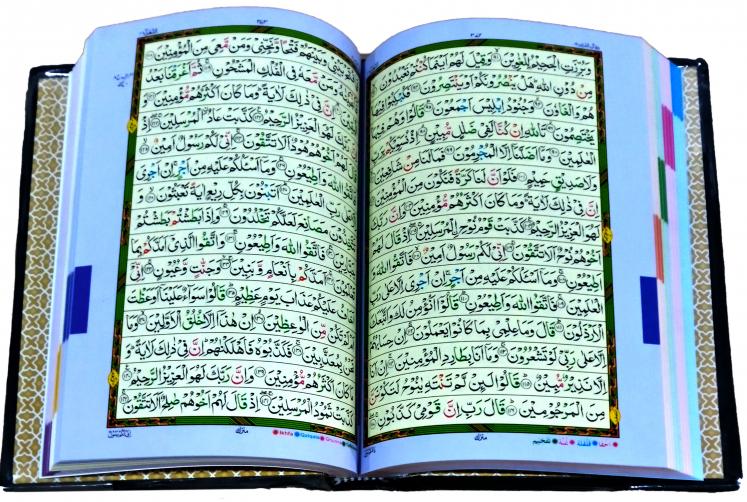 وَبُرِّزَتِ الْجَحِيْمُ لِلْغٰوِيْنَ وَقِيْلَ لَهُمْ اَيْنَمَا كُنْتُمْ تَعْبُدُوْنَ
مِنْ دُوْنِ اللّٰهِ هَلْ يَنْصُرُوْنَكُمْ اَوْ يَنْتَصِرُوْنَ فَكُبْكِبُوْا فِيْهَا
هُمْ وَالْغَاوٗنَ وَجُنُوْدُ اِبْلِيْسَ اَجْمَعُوْنَ قَالُوْا وَهُمْ فِيْهَا
يَخْتَصِمُوْنَ تَاللّٰهِ اِنْ كُنَّا لَفِيْ ضَلٰلٍ مُّبِيْنٍ اِذْ نُسَوِّيْكُمْ بِرَبِّ
الْعٰلَمِيْنَ وَمَاۤ اَضَلَّنَاۤ اِلَّا الْمُجْرِمُوْنَ فَمَا لَنَا مِنْ شَافِعِيْنَ
وَلَا صَدِيْقٍ حَمِيْمٍ فَلَوْ اَنَّ لَنَا كَرَّةً فَنَكُوْنَ مِنَ الْمُؤْمِنِيْنَ
اِنَّ فِيْ ذٰلِكَ لَاٰيَةً وَمَا كَانَ اَكْثَرُهُمْ مُّؤْمِنِيْنَ وَاِنَّ رَبَّكَ
لَهُوَ الْعَزِيْزُ الرَّحِيْمُ كَذَّبَتْ قَوْمُ نُوْحِ الْمُرْسَلِيْنَ اِذْ قَالَ لَهُمْ
اَخُوْهُمْ نُوْحٌ اَلَا تَتَّقُوْنَ اِنِّيْ لَكُمْ رَسُوْلٌ اَمِيْنٌ فَاتَّقُوا اللّٰهَ وَ
اَطِيْعُوْنِ وَمَاۤ اَسْئَلُكُمْ عَلَيْهِ مِنْ اَجْرٍ اِنْ اَجْرِيَ اِلَّا عَلٰى رَبِّ
الْعٰلَمِيْنَ فَاتَّقُوا اللّٰهَ وَاَطِيْعُوْنِ قَالُوْۤا اَنُؤْمِنُ لَكَ وَاتَّبَعَكَ
الْاَرْذَلُوْنَ قَالَ وَمَا عِلْمِيْ بِمَا كَانُوْا يَعْمَلُوْنَ اِنْ حِسَابُهُمْ
اِلَّا عَلٰى رَبِّيْ لَوْ تَشْعُرُوْنَ وَمَاۤ اَنَا بِطَارِدِ الْمُؤْمِنِيْنَ اِنْ اَنَا
اِلَّا نَذِيْرٌ مُّبِيْنٌ قَالُوْا لَئِنْ لَّمْ تَنْتَهِ يٰنُوْحُ لَتَكُوْنَنَّ
مِنَ الْمَرْجُوْمِيْنَ قَالَ رَبِّ اِنَّ قَوْمِيْ كَذَّبُوْنِ
منزل
فَافْتَحْ بَيْنِيْ وَبَيْنَهُمْ فَتْحًا وَّنَجِّنِيْ وَمَنْ مَّعِيَ مِنَ الْمُؤْمِنِيْنَ
فَاَنْجَيْنٰهُ وَمَنْ مَّعَهٗ فِي الْفُلْكِ الْمَشْحُوْنِ ثُمَّ اَغْرَقْنَا بَعْدُ
الْبٰقِيْنَ اِنَّ فِيْ ذٰلِكَ لَاٰيَةً وَمَا كَانَ اَكْثَرُهُمْ مُّؤْمِنِيْنَ وَ
اِنَّ رَبَّكَ لَهُوَ الْعَزِيْزُ الرَّحِيْمُ كَذَّبَتْ عَادُ الْمُرْسَلِيْنَ اِذْ
قَالَ لَهُمْ اَخُوْهُمْ هُوْدٌ اَلَا تَتَّقُوْنَ اِنِّيْ لَكُمْ رَسُوْلٌ اَمِيْنٌ
فَاتَّقُوا اللّٰهَ وَاَطِيْعُوْنِ وَمَاۤ اَسْئَلُكُمْ عَلَيْهِ مِنْ اَجْرٍ اِنْ اَجْرِيَ
اِلَّا عَلٰى رَبِّ الْعٰلَمِيْنَ اَتَبْنُوْنَ بِكُلِّ رِيْعٍ اٰيَةً تَعْبَثُوْنَ
وَتَتَّخِذُوْنَ مَصَانِعَ لَعَلَّكُمْ تَخْلُدُوْنَ وَاِذَا بَطَشْتُمْ بَطَشْتُمْ
جَبَّارِيْنَ فَاتَّقُوا اللّٰهَ وَاَطِيْعُوْنِ وَاتَّقُوا الَّذِيْۤ اَمَدَّكُمْ بِمَا
تَعْلَمُوْنَ اَمَدَّكُمْ بِاَنْعَامٍ وَّبَنِيْنَ وَجَنّٰتٍ وَّعُيُوْنٍ اِنِّيْۤ
اَخَافُ عَلَيْكُمْ عَذَابَ يَوْمٍ عَظِيْمٍ قَالُوْا سَوَآءٌ عَلَيْنَاۤ اَوَعَظْتَ
اَمْ لَمْ تَكُنْ مِّنَ الْوٰعِظِيْنَ اِنْ هٰذَاۤ اِلَّا خُلُقُ الْاَوَّلِيْنَ وَمَا
نَحْنُ بِمُعَذَّبِيْنَ فَكَذَّبُوْهُ فَاَهْلَكْنٰهُمْ اِنَّ فِيْ ذٰلِكَ لَاٰيَةً وَ
مَا كَانَ اَكْثَرُهُمْ مُّؤْمِنِيْنَ وَاِنَّ رَبَّكَ لَهُوَ الْعَزِيْزُ الرَّحِيْمُ
كَذَّبَتْ ثَمُوْدُ الْمُرْسَلِيْنَ اِذْ قَالَ لَهُمْ اَخُوْهُمْ صٰلِحٌ اَلَا تَتَّقُوْنَ
منزل
Ikhfa Qalqala